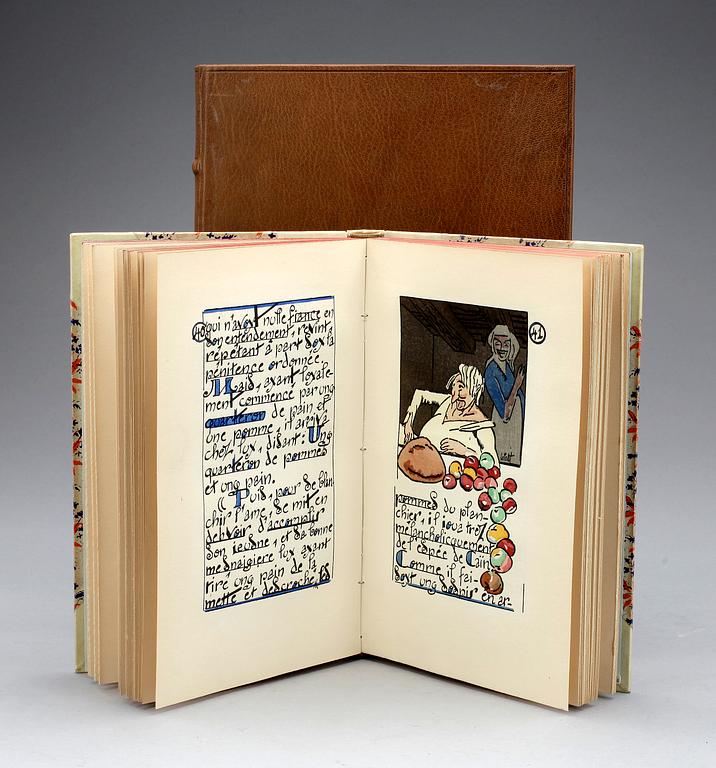 40
qui n'avoyt nulle fiance en
son entendement, revint,
répétant à part soy la
pénitence ordonnée.
Mais, ayant loyale-
ment commencé par ung
quarteron de pain et
une pomme, il arriva
chez luy, disant: Ung
quarteron de pommes
et ung pain.
Puis, pour se blan-
chir l'ame, se mit en
debvoir d'accomplir
son ieusne, et sa bonne
mesnaigiere luy ayant
tiré ung pain de la
mette et descroché les
41
pommes du plan-
chier, il joua trez
melancholicquement
de l'espée de Caïn.
Comme il fai-
soyt ung souspir en ar-